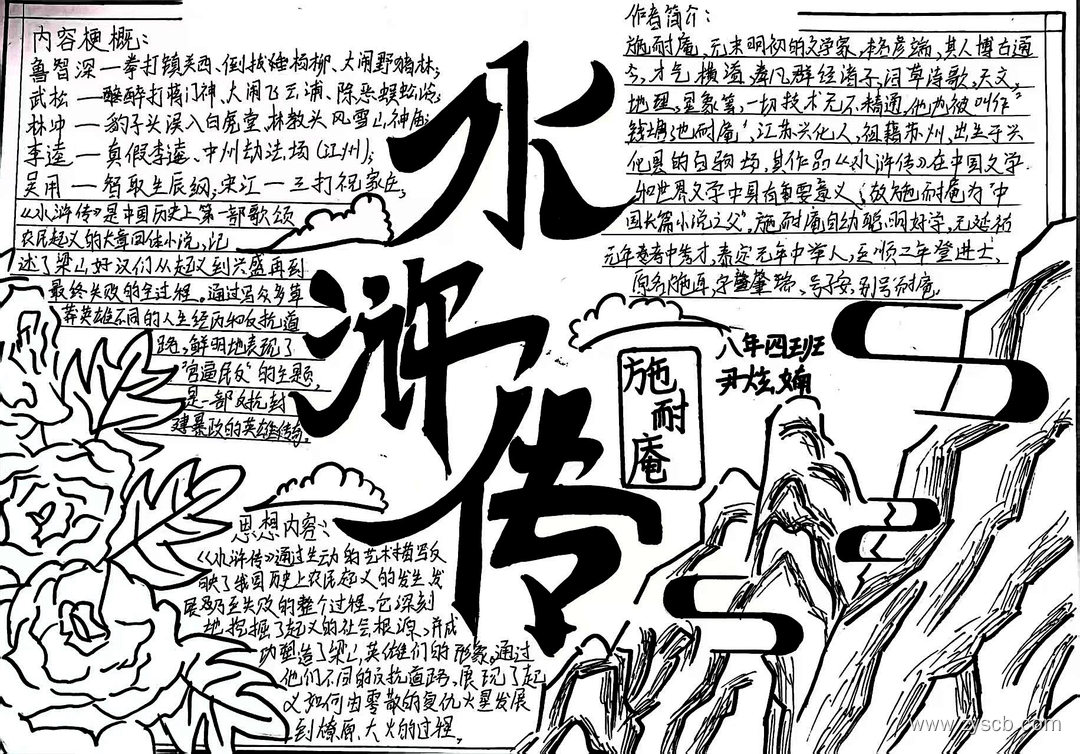 内容梗概:
鲁智深—拳打镇关西、倒拔垂杨柳、大闹野猪林;
武松—醉打蒋门神、大闹飞云浦、除恶蜈蚣岭;
林冲—豹子头误入白虎堂、林教头风雪山神庙;
李逵—真假李逵、中州劫法场(江州);
吴用—智取生辰纲;宋江—三打祝家庄。
《水浒传》是中国历史上第一部歌颂
农民起义的大章回体小说,记
述了梁山好汉们从起义到兴盛再到
最终失败的全过程。通过写众多草
莽英雄不同的人生经历和反抗道
路,鲜明地表现了
"官逼民反"的主题,
是一部反抗封
建暴政的英雄传奇。
水浒传
作者简介:
施耐庵,元末明初的文学家,本名彦端,其人博古通
今,才气横溢,举凡群经诸子,词章诗歌,天文,
地理,星象等,一切技术无不精通,他也被叫作"
钱塘施耐庵",江苏兴化人,祖籍苏州,出生于兴
化县的白驹场,其作品《水浒传》在中国文学
和世界文学中具有重要意义,故施耐庵为"中
国长篇小说之父"。施耐庵自幼聪明好学,元延祐
元年考中秀才,泰定元年中举人,至顺二年登进士,
原名施耳,字肇瑞,号子安,别号耐庵。
八年四班
尹炫
施耐庵
思想内容:
《水浒传》通过生动的艺术描写反
映了我国历史上农民起义的发生、发
展乃至失败的整个过程,它深刻
地挖掘了起义的社会根源,并成
功塑造了梁山英雄们的形象。通过
他们不同的反抗道路,展现了起
义如何由零散的复仇火星发展
到燎原大火的过程。
www.zyscb.com